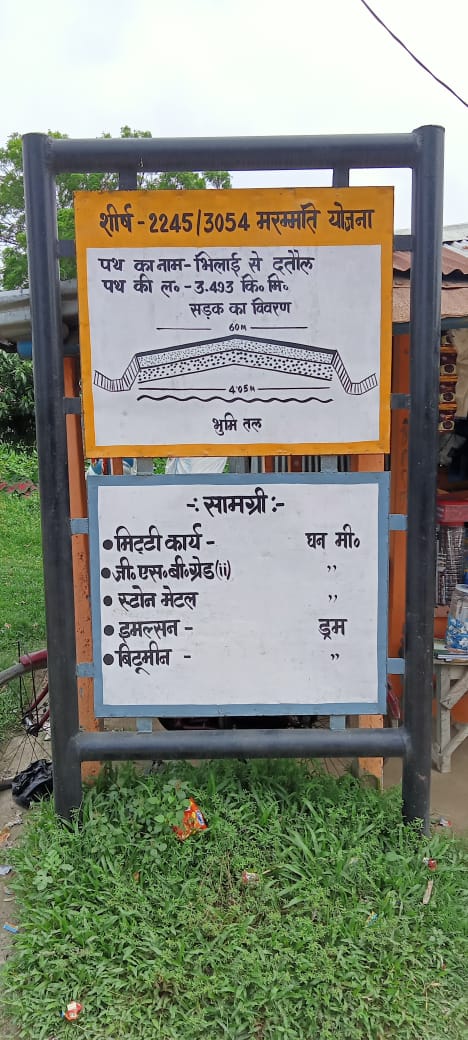 शीर्ष - 2245/3054 मरम्मति योजना
पथ का नाम - भिलाई से दतौल
पथ की ल॰ - 3.493 कि॰ मि॰
सड़क का विवरण
60m
4.05m
भूमि तल
-: सामग्री :-
• मिट्टी कार्य - घन मी॰
• जी॰ एस॰ बी॰ ग्रेड (ii) ,,
• स्टोन मेटल ,,
• इमल्सन - ड्रम
• बिटूमीन - ,,